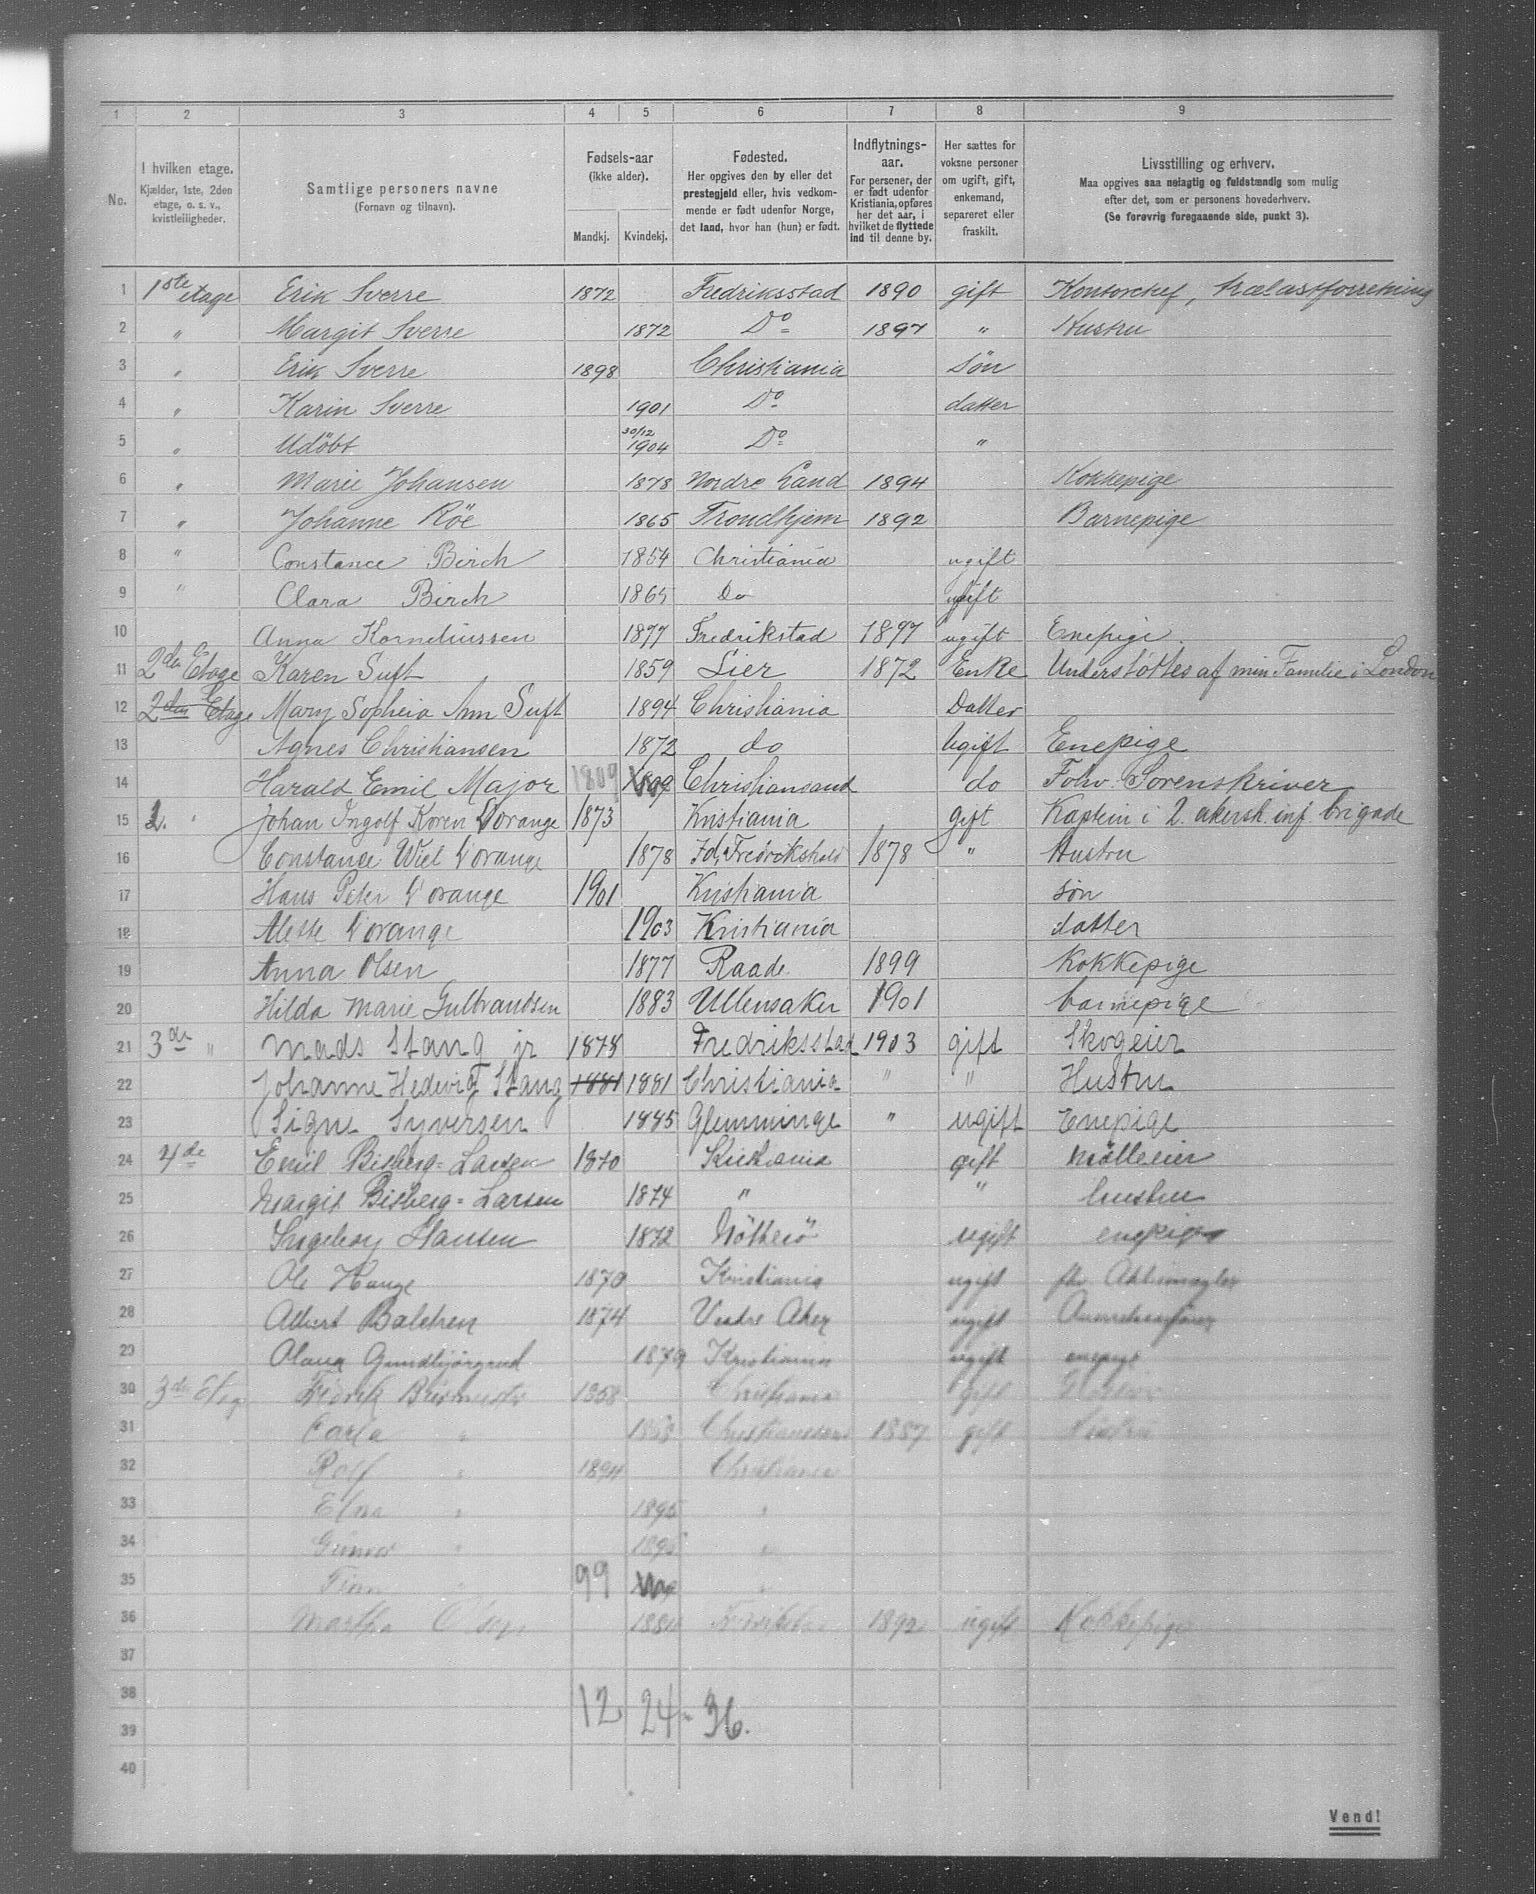 1 2 3 4 5 6 7 8 9
No.
I hvilken etage.
Kjælder, 1ste, 2den
etage, o. s. v.,
kvistleiligheder.
Samtlige personers navne
(Fornavn og tilnavn).
Fødsels-aar
(ikke alder).
Mandkj. Kvindekj.
Fødested.
Her opgives den by eller det
prestegjeld eller, hvis vedkom-
mende er født udenfor Norge,
det land, hvor han (hun) er født.
Indflytnings-
aar.
For personer, der
er født udenfor
Kristiania, opføres
her det aar, i
hvilket de flyttede
ind til denne by.
Her sættes for
voksne personer
om ugift, gift,
enkemand,
separeret eller
fraskilt.
Livsstilling og erhverv.
Maa opgives saa nøiagtig og fuldstændig som mulig
efter det, som er personens hovederhverv.
(Se forøvrig foregaaende side, punkt 3).
1 1ste etage Erik Sverre 1872 Fredriksstad 1890 gift Kontorchef, trælastforretning
2 " Margit Sverre 1872 Do 1897 " Hustru
3 " Erik Sverre 1898 Christiania søn
4 " Karin Sverre 1901 Do datter
5 " Udøbt 30/12 1904 Do "
6 " Marie Johansen 1878 Nordre Land 1894 Kokkepige
7 " Johanne Röe 1865 Trondhjem 1892 Barnepige
8 " Constance Birch 1854 Christiania ugift
9 " Clara Birch 1865 Do ugift
10 Anna Korneliussen 1877 Fredrikstad 1897 ugift Enepige.
11 2den Etage Karen Suft 1859 Lier 1872 Enke Understøttes af min Familie i London
12 2den Etage Mary Sopheia Ann Suft 1894 Christiania Datter
13 Agnes Christiansen 1872 do Ugift Enepige
14 Harald Emil Major 1809 Christiansand do Fohv. Sorenskriver
15 2. " Johan Ingolf Koren Vorange 1873 Kristiania Gift Kaptein i 2. akersh. inf. brigade
16 Constance Wiel Vorange 1878 Id, Fredrikshald 1878 " Hustru
17 Hans Peter Vorange 1901 Kristiania søn
18 Alette Vorange 1903 Kristiania datter
19 Anna Olsen 1877 Raade 1899 Kokkepige
20 Hilda Marie Gulbrandsen 1883 Ullensaker 1901 barnepige
21 3die " Mads Stang jr 1878 Fredriksstad 1903 gift Skogeier
22 Johanne Hedevig Stang 1881 1881 Christiania " " Hustru
23 Signe Syversen 1885 Glemminge " ugift Enepige
24 4de Emil Bisberg-Larsen 1870 Kristiania gift Mölleeier
25 Margit Bisberg-Larsen 1874 " " hustru
26 Ingeborg Hansen 1872 Nötterö ugift enepige
27 Ole Hauge 1870 Kristiania ugift
28 Albert Balchen 1874 Vestre Aker ugift
29 1879 Kristiania ugift enepige
30 3die Etag Fredrik 1858 Christiania gift
31 Carla " 1863 Christianssand 1887 gift Hustru
32 Rolf " 1894 Christiania
33 " 1895 "
34 " "
35 " 99 "
36 Martha Olsen ugift Kokkepige
37
38 12 24 - 36.
39
40
Vend!